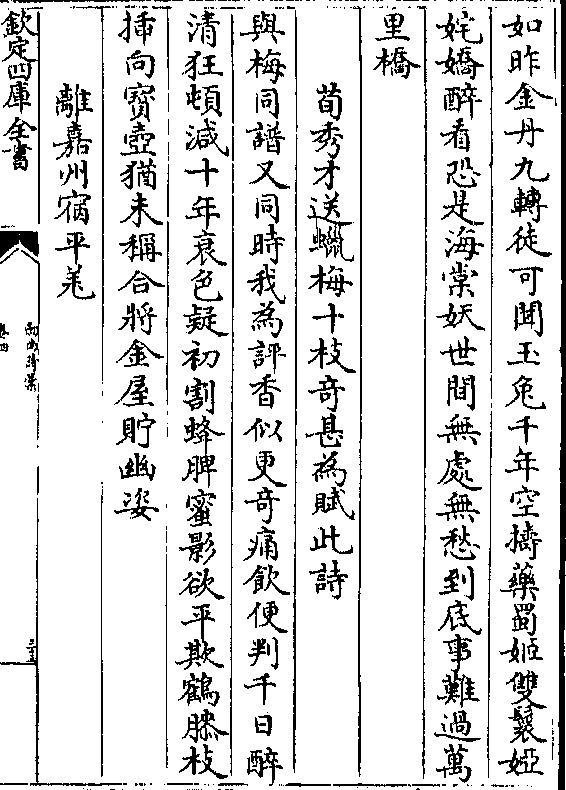 如昨金丹九轉徒可聞玉兔千年空擣藥蜀姬雙鬟婭
姹嬌醉看恐是海棠妖世間無處無愁到底事難過萬
里橋
荀秀才送蠟梅十枝奇甚為賦此詩
與梅同譜又同時我為評香似更奇痛飲便判千日醉
清狂頓減十年衰色疑初割蜂脾蜜影欲平欺鶴膝枝
插向寶壺猶未稱合將金屋貯幽姿
離嘉州宿平羌
欽定四庫全書
劍南詩藁
卷四